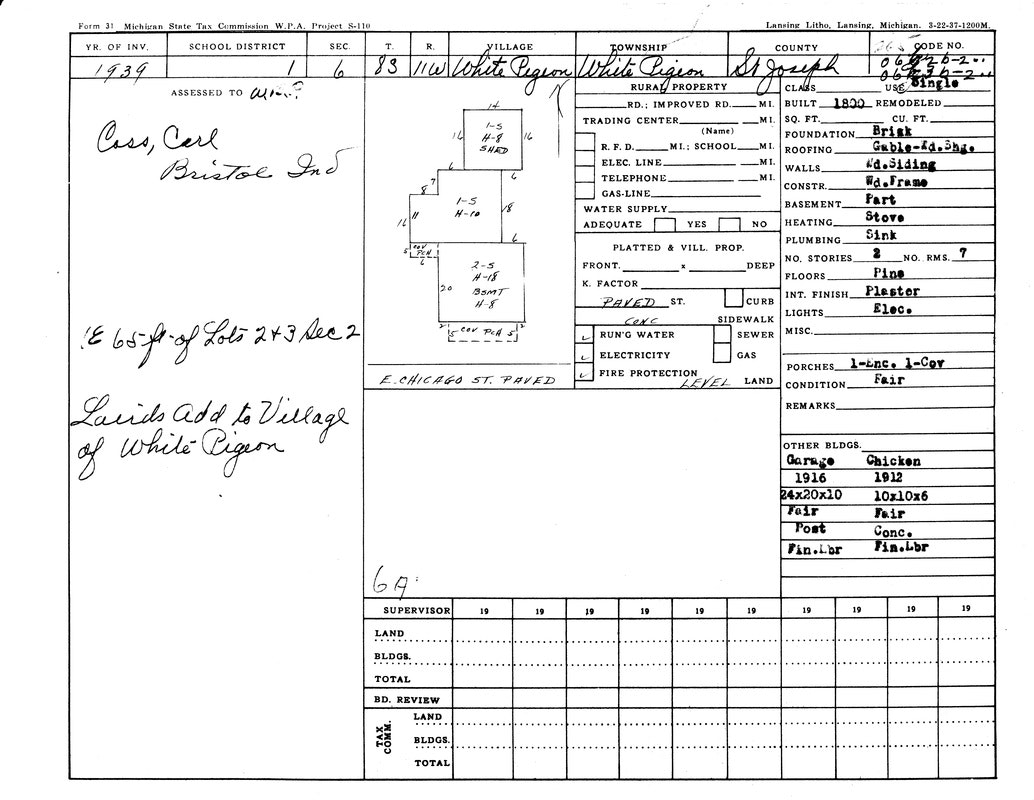 Form 31 Michigan State Tax Commission W.P.A. Project S-110
Lansing Litho, Lansing, Michigan. 3-22-37-1200M.
YR. OF INV. SCHOOL DISTRICT SEC. T. R. VILLAGE TOWNSHIP COUNTY CODE NO.
1939 1 6 8S 11W White Pigeon White Pigeon St Joseph
ASSESSED TO
Coss, Carl
Bristol Ind
E 65 ft of Lots 2 & 3 Sec 2
Lairds Add to Village
of White Pigeon
14
16 1-S 16
H-8
SHED
6 6
7
8
1-S
H-10
16 11 18
6
5 COV PCH
6
2-S
H-18
20 BSMT
H-8
2 2
5 COV PCH 5
E. CHICAGO ST. PAVED
RURAL PROPERTY
RD.; IMPROVED RD. MI.
TRADING CENTER MI.
(Name)
R. F. D. MI.; SCHOOL MI.
ELEC. LINE MI.
TELEPHONE MI.
GAS-LINE
WATER SUPPLY
ADEQUATE YES NO
PLATTED & VILL. PROP.
FRONT. x DEEP
K. FACTOR
PAVED ST. CURB
CONC SIDEWALK
✓ RUN'G WATER SEWER
✓ ELECTRICITY GAS
✓ FIRE PROTECTION
LEVEL LAND
CLASS USE Single
BUILT 1800 REMODELED
SQ. FT. CU. FT.
FOUNDATION Brisk
ROOFING Gable-Wd.Shg.
WALLS Wd.Siding
CONSTR. Wd.Frame
BASEMENT Part
HEATING Stove
PLUMBING Sink
NO. STORIES 2 NO. RMS. 7
FLOORS Pine
INT. FINISH Plaster
LIGHTS Elec.
MISC.
PORCHES 1-Enc. 1-Cov
CONDITION Fair
REMARKS
OTHER BLDGS.
Garage Chicken
1916 1912
24x20x10 10x10x6
Fair Fair
Post Conc.
Fin.Lbr Fin.Lbr
6A
SUPERVISOR 19 19 19 19 19 19 19 19 19 19
LAND
BLDGS.
TOTAL
BD. REVIEW
TAX COMM.
LAND
BLDGS.
TOTAL